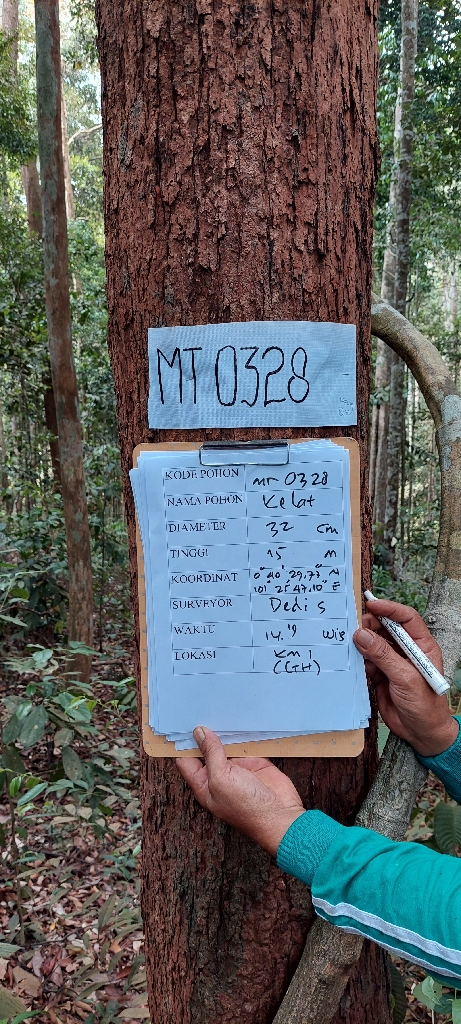 MT 0328
KODE POHON MT 0328
NAMA POHON Kelat
DIAMETER 32 cm
TINGGI 15 M
KOORDINAT 0° 40' 29,77" N
101° 21' 47,10" E
SURVEYOR Dedi s
WAKTU 14.19 WIB
LOKASI KM 1
(CTH)